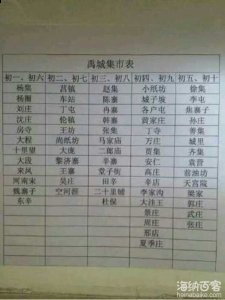 禹城集市表
初一、初六 初二、初七 初三、初八 初四、初九 初五、初十
杨集 莒镇 赵集 小纸坊 徐集
杨圈 车站 陈寨 城子坡 李屯
刘庄 丁屯 冉寨 各户屯 焦寨子
沈庄 轮镇 韩寨 曾家庄 孙庄
房寺 王坊 张集 丁寺 善集
大程 尚纸坊 马家庙 万庄 城里
十里望 大庞 二郎庙 贾集 齐集
大段 黎济寨 辛寨 安仁 袁营
来凤 王寨 堂子街 高庄 前油坊
河南宋 吴庄 田庄 辛店 天宫院
魏寨子 空河涯 二十里铺 李家沟 梁家
东辛 杜保 大洼王 郭庄
景庄 武庄
周庄 张庄
邢店
夏季庄
海纳百客